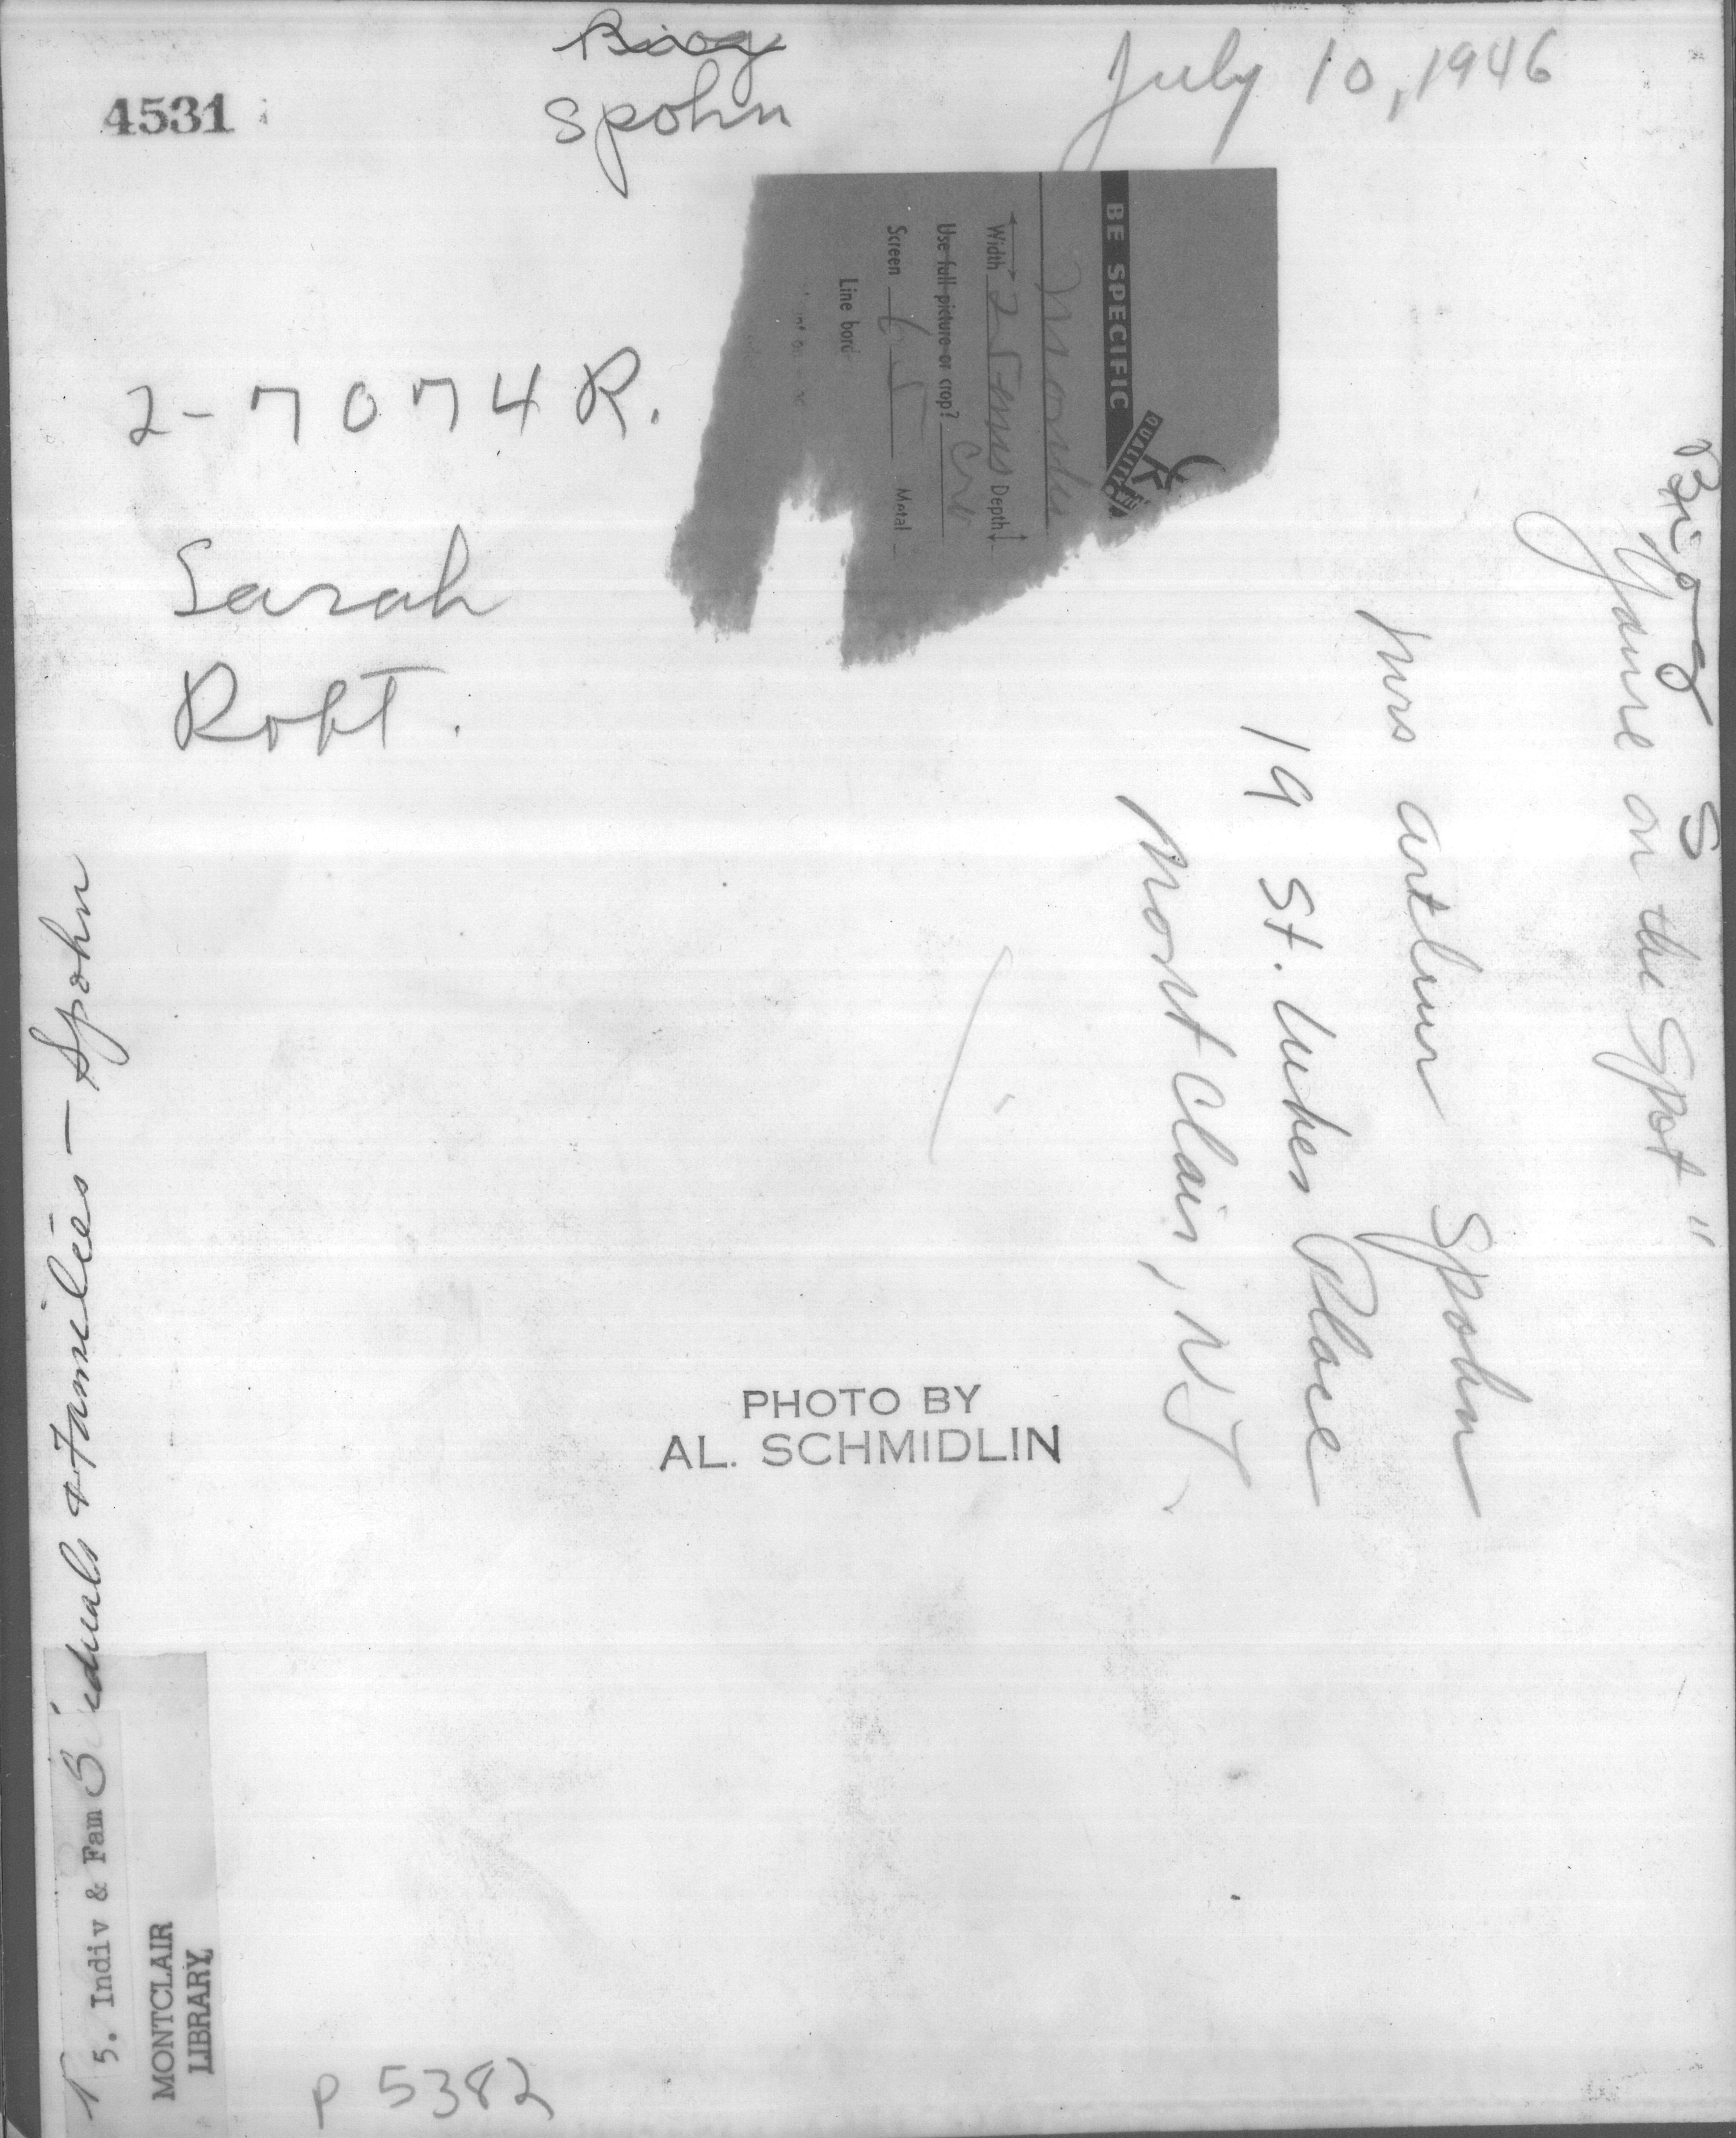 4531
Biog
Spohn
July 10, 1946
BE SPECIFIC
QUALITY
Width 2 Depth
Use full picture or crop?
Screen 65 Metal
Line
2-7074 R.
Sarah
Robt.
Biog S
on the Spot"
Mrs Arthur Spohn
19 St. Lukes Place
MontClair, NJ.
PHOTO BY
AL. SCHMIDLIN
iduals & Families - Spohn
5. Indiv & Fam
MONTCLAIR
LIBRARY
P 5382